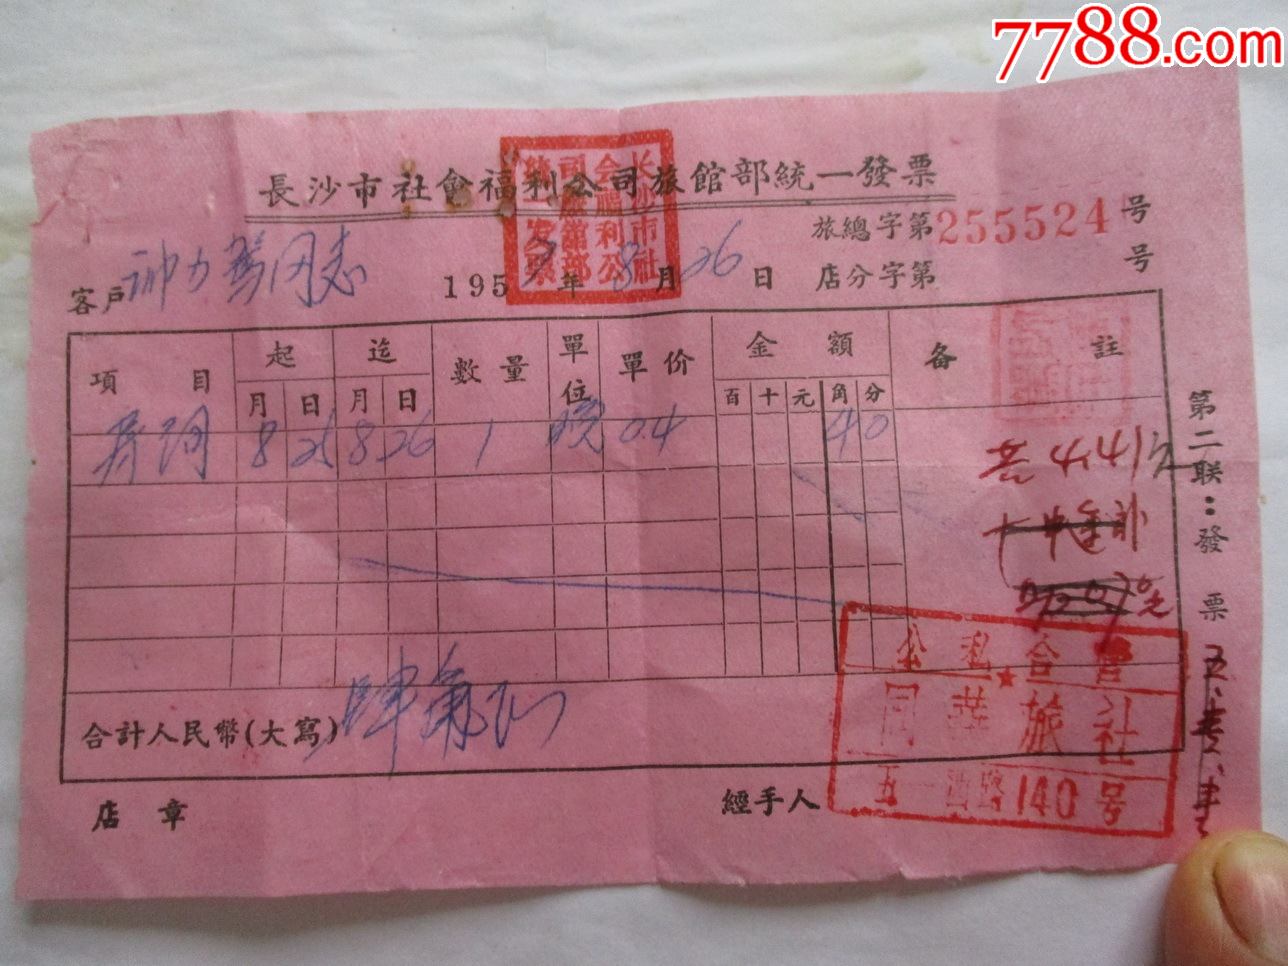 7788.com
長沙市社會福利公司旅館部統一發票
长沙市社会福利公司旅館部統一发票
旅總字第255524号
客戶 同志 1957年8月26日 店分字第 号
項目 起 迄 數量 單位 單价 金額 备註
月 日 月 日 百 十 元 角 分
8 25 8 26 1 0.4 4 0
共4.41元
合計人民幣(大寫) 肆角正
店章 經手人
公私合营
同華旅社
五一西路140号
第二联:發票